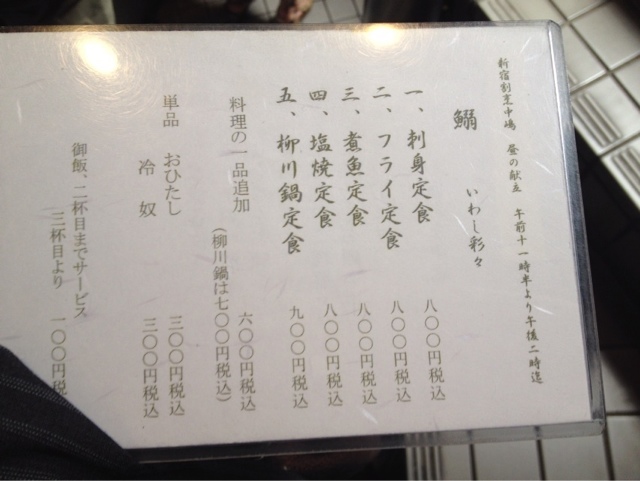 新宿割烹中嶋 昼の献立 午前十一時半より午後二時迄
鰯 いわし彩々
一、刺身定食 八〇〇円税込
二、フライ定食 八〇〇円税込
三、煮魚定食 八〇〇円税込
四、塩焼定食 八〇〇円税込
五、柳川鍋定食 九〇〇円税込
料理の一品追加 六〇〇円税込
(柳川鍋は七〇〇円税込)
単品 おひたし 三〇〇円税込
冷奴 三〇〇円税込
御飯、二杯目までサービス
三杯目より 一〇〇円税